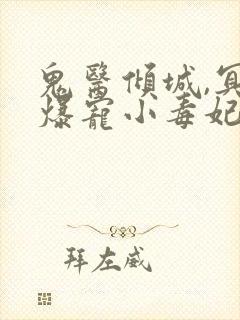 鬼醫傾城,冥
爆寵小毒妃
拜左威